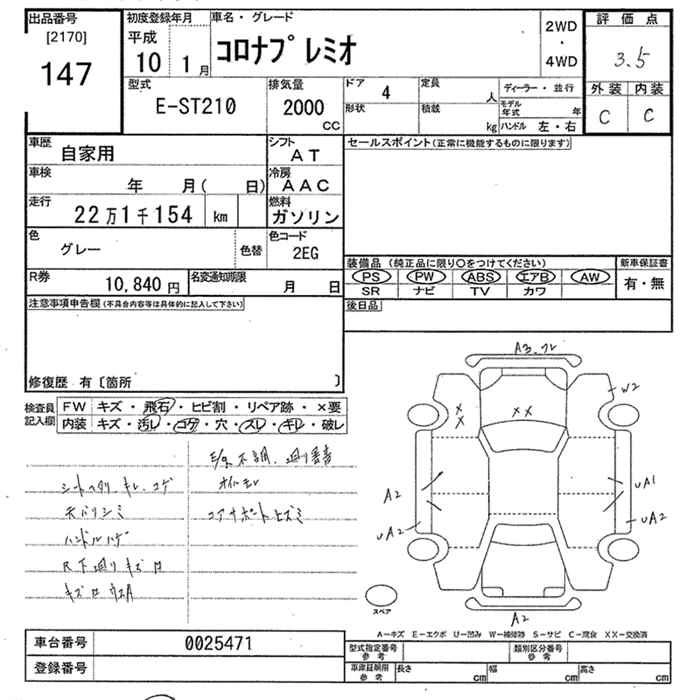 出品番号
[2170]
147
初度登録年月
平成
10 1月
車名・グレード
コロナプレミオ
2WD
・
4WD
評価点
3.5
外装 内装
C C
型式
E-ST210
排気量
2000
CC
ドア 4
形状
定員 人
積載 kg
ディーラー・並行
モデル年式 年
ハンドル 左・右
車歴
自家用
シフト
AT
セールスポイント(正常に機能するものに限ります)
車検
年 月( 日)
冷房
AAC
走行
22万1千154 km
燃料
ガソリン
色
グレー
色替
色コード
2EG
装備品(純正品に限り○をつけてください)
PS PW ABS エアB AW
SR ナビ TV カワ
新車保証書
有・無
R券
10,840円
名変通知期限
月 日
後日品
注意事項申告欄(不具合内容等は具体的に記入して下さい)
修復歴 有〔箇所 〕
検査員記入欄
FW キズ・飛石・ヒビ割・リペア跡・×要
内装 キズ・汚レ・コゲ・穴・スレ・キレ・破レ
シートヘタリ、キレ、コゲ
天バリシミ
ハンドルハゲ
オイルモレ
コアサポートヒズミ
A3
W2
××
××
A2
UA2
UA1
UA2
A2
スペア
A-キズ E-エクボ U-凹み W-補修跡 S-サビ C-腐食 XX-交換済
車台番号 0025471
登録番号
型式指定番号 参考
類別区分番号 参考
車庫証明用 参考
長さ cm 幅 cm 高さ cm